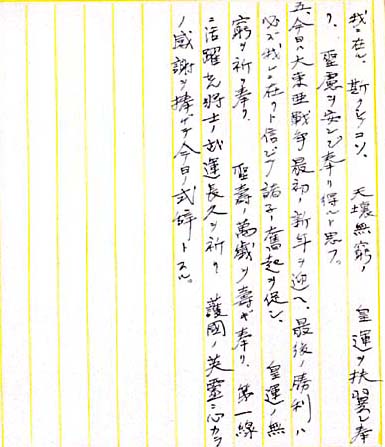 我ニ在レ、斯クテコソ、 天壌無窮ノ 皇運ヲ扶翼シ奉
リ、 聖慮ヲ安ンジ奉リ得ルト思フ。
五、今日ハ大東亜戦争最初ノ新年ヲ迎ヘ、最後ノ勝利ハ
必ズ我レニ在リト信ジツ諸子ノ奮起ヲ促シ、 皇運ノ無
窮ヲ祈リ奉リ、 聖寿ノ萬歳ヲ寿ギ奉リ、第一線
ニ活躍スル将士ノ武運長久ヲ祈リ 護國ノ英霊ニ心カラ
ノ感謝ヲ捧ゲテ今日ノ式辞トスル。